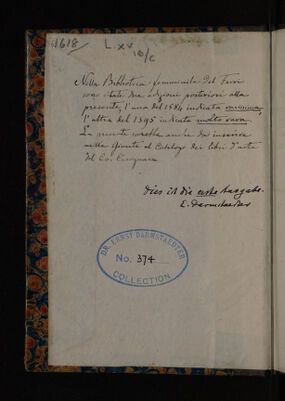 1618
L xv
10/c
Nella Biblioteca femminile del Ferri
sono citate due edizioni posteriori alla
presente, l'una del 1584 indicata rarissima,
l'altra del 1595 indicata molto rara.
La presente sarebbe anche da inserirsi
nella Giunta al Catalogo dei libri d'arte
del Co. Cicognara
Dies ist die erste Ausgabe.
E. Darmstaedter
DR. ERNST DARMSTAEDTER
No. 374
COLLECTION